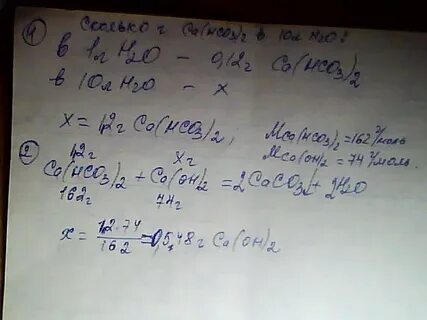 ① Сколько г Ca(HCO3)2 в 10л H2O?
в 1л H2O – 0,12г Ca(HCO3)2
в 10л H2O – x
x = 1,2г Ca(HCO3)2, MCa(HCO3)2 = 162 г/моль
MCa(OH)2 = 74 г/моль.
② 1,2г xг
Ca(HCO3)2 + Ca(OH)2 = 2CaCO3↓ + 2H2O
162г 74г
x = 1,2·74/162 = 0,548г Ca(OH)2